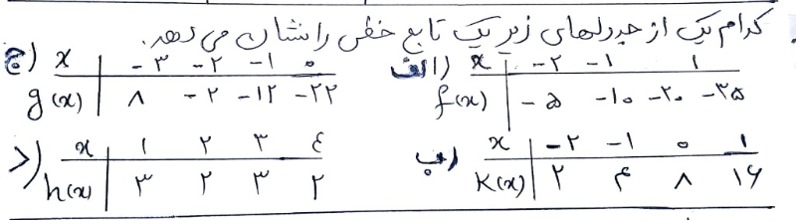 کدام یک از جدولهای زیر یک تابع خطی را نشان می دهد.
الف) x | -۲ -۱ ۱
f(x) | -۵ -۱۰ -۲۰ -۳۵
ج) x | -۳ -۲ -۱ ۰
g(x) | ۸ -۲ -۱۲ -۲۲
ب) x | -۲ -۱ ۰ ۱
K(x) | ۲ ۴ ۸ ۱۶
د) x | ۱ ۲ ۳ ٤
h(x) | ۳ ۲ ۳ ۲